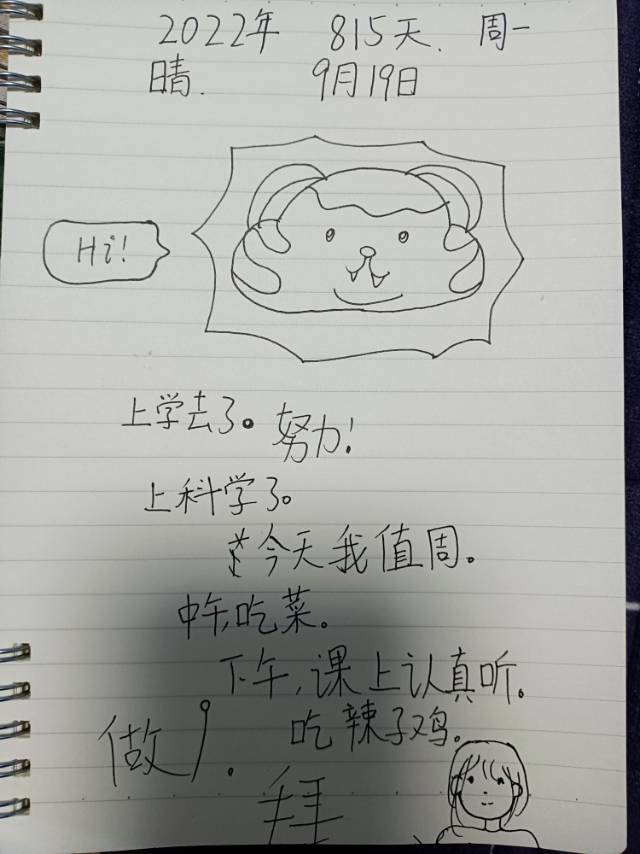 2022年 815天. 周一
晴. 9月19日
Hi!
上学去了。努力!
上科学了。
今天我值周。
中午,吃菜。
下午,课上认真听。
吃辣子鸡。
做 。
拜